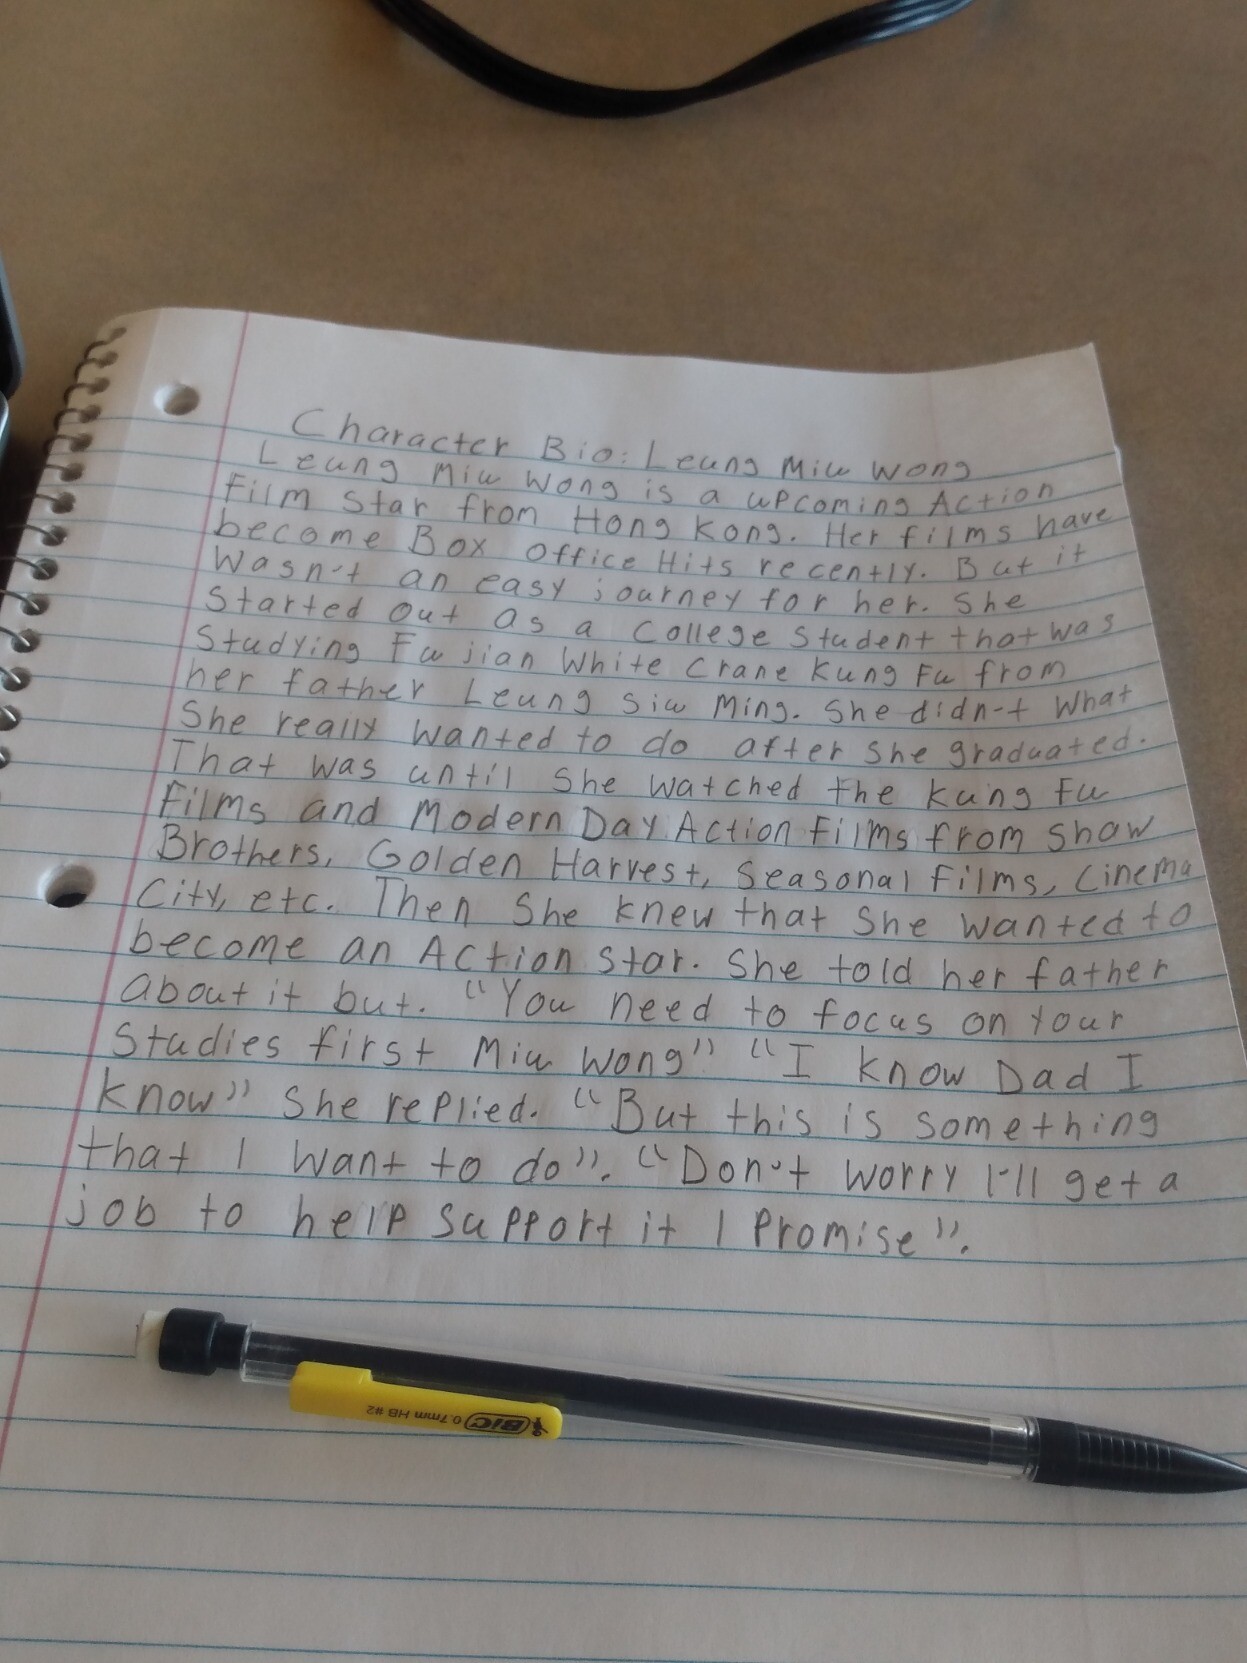 Character Bio: Leung Miu Wong
Leung Miu Wong is a upcoming Action
Film Star from Hong Kong. Her films have
become Box Office Hits recently. But it
wasn't an easy journey for her. She
started out as a College student that was
studying Fujian White Crane Kung Fu from
her father Leung Siu Ming. She didn't what
She really wanted to do after she graduated.
That was until she watched the Kung Fu
Films and Modern Day Action Films from Shaw
Brothers, Golden Harvest, Seasonal Films, Cinema
City, etc. Then She knew that She wanted to
become an Action Star. She told her father
about it but. "You need to focus on your
Studies first Miu Wong" "I know Dad I
know" She replied. "But this is something
that I want to do". "Don't worry I'll get a
job to help support it I Promise".
BIC 0.7mm HB #2